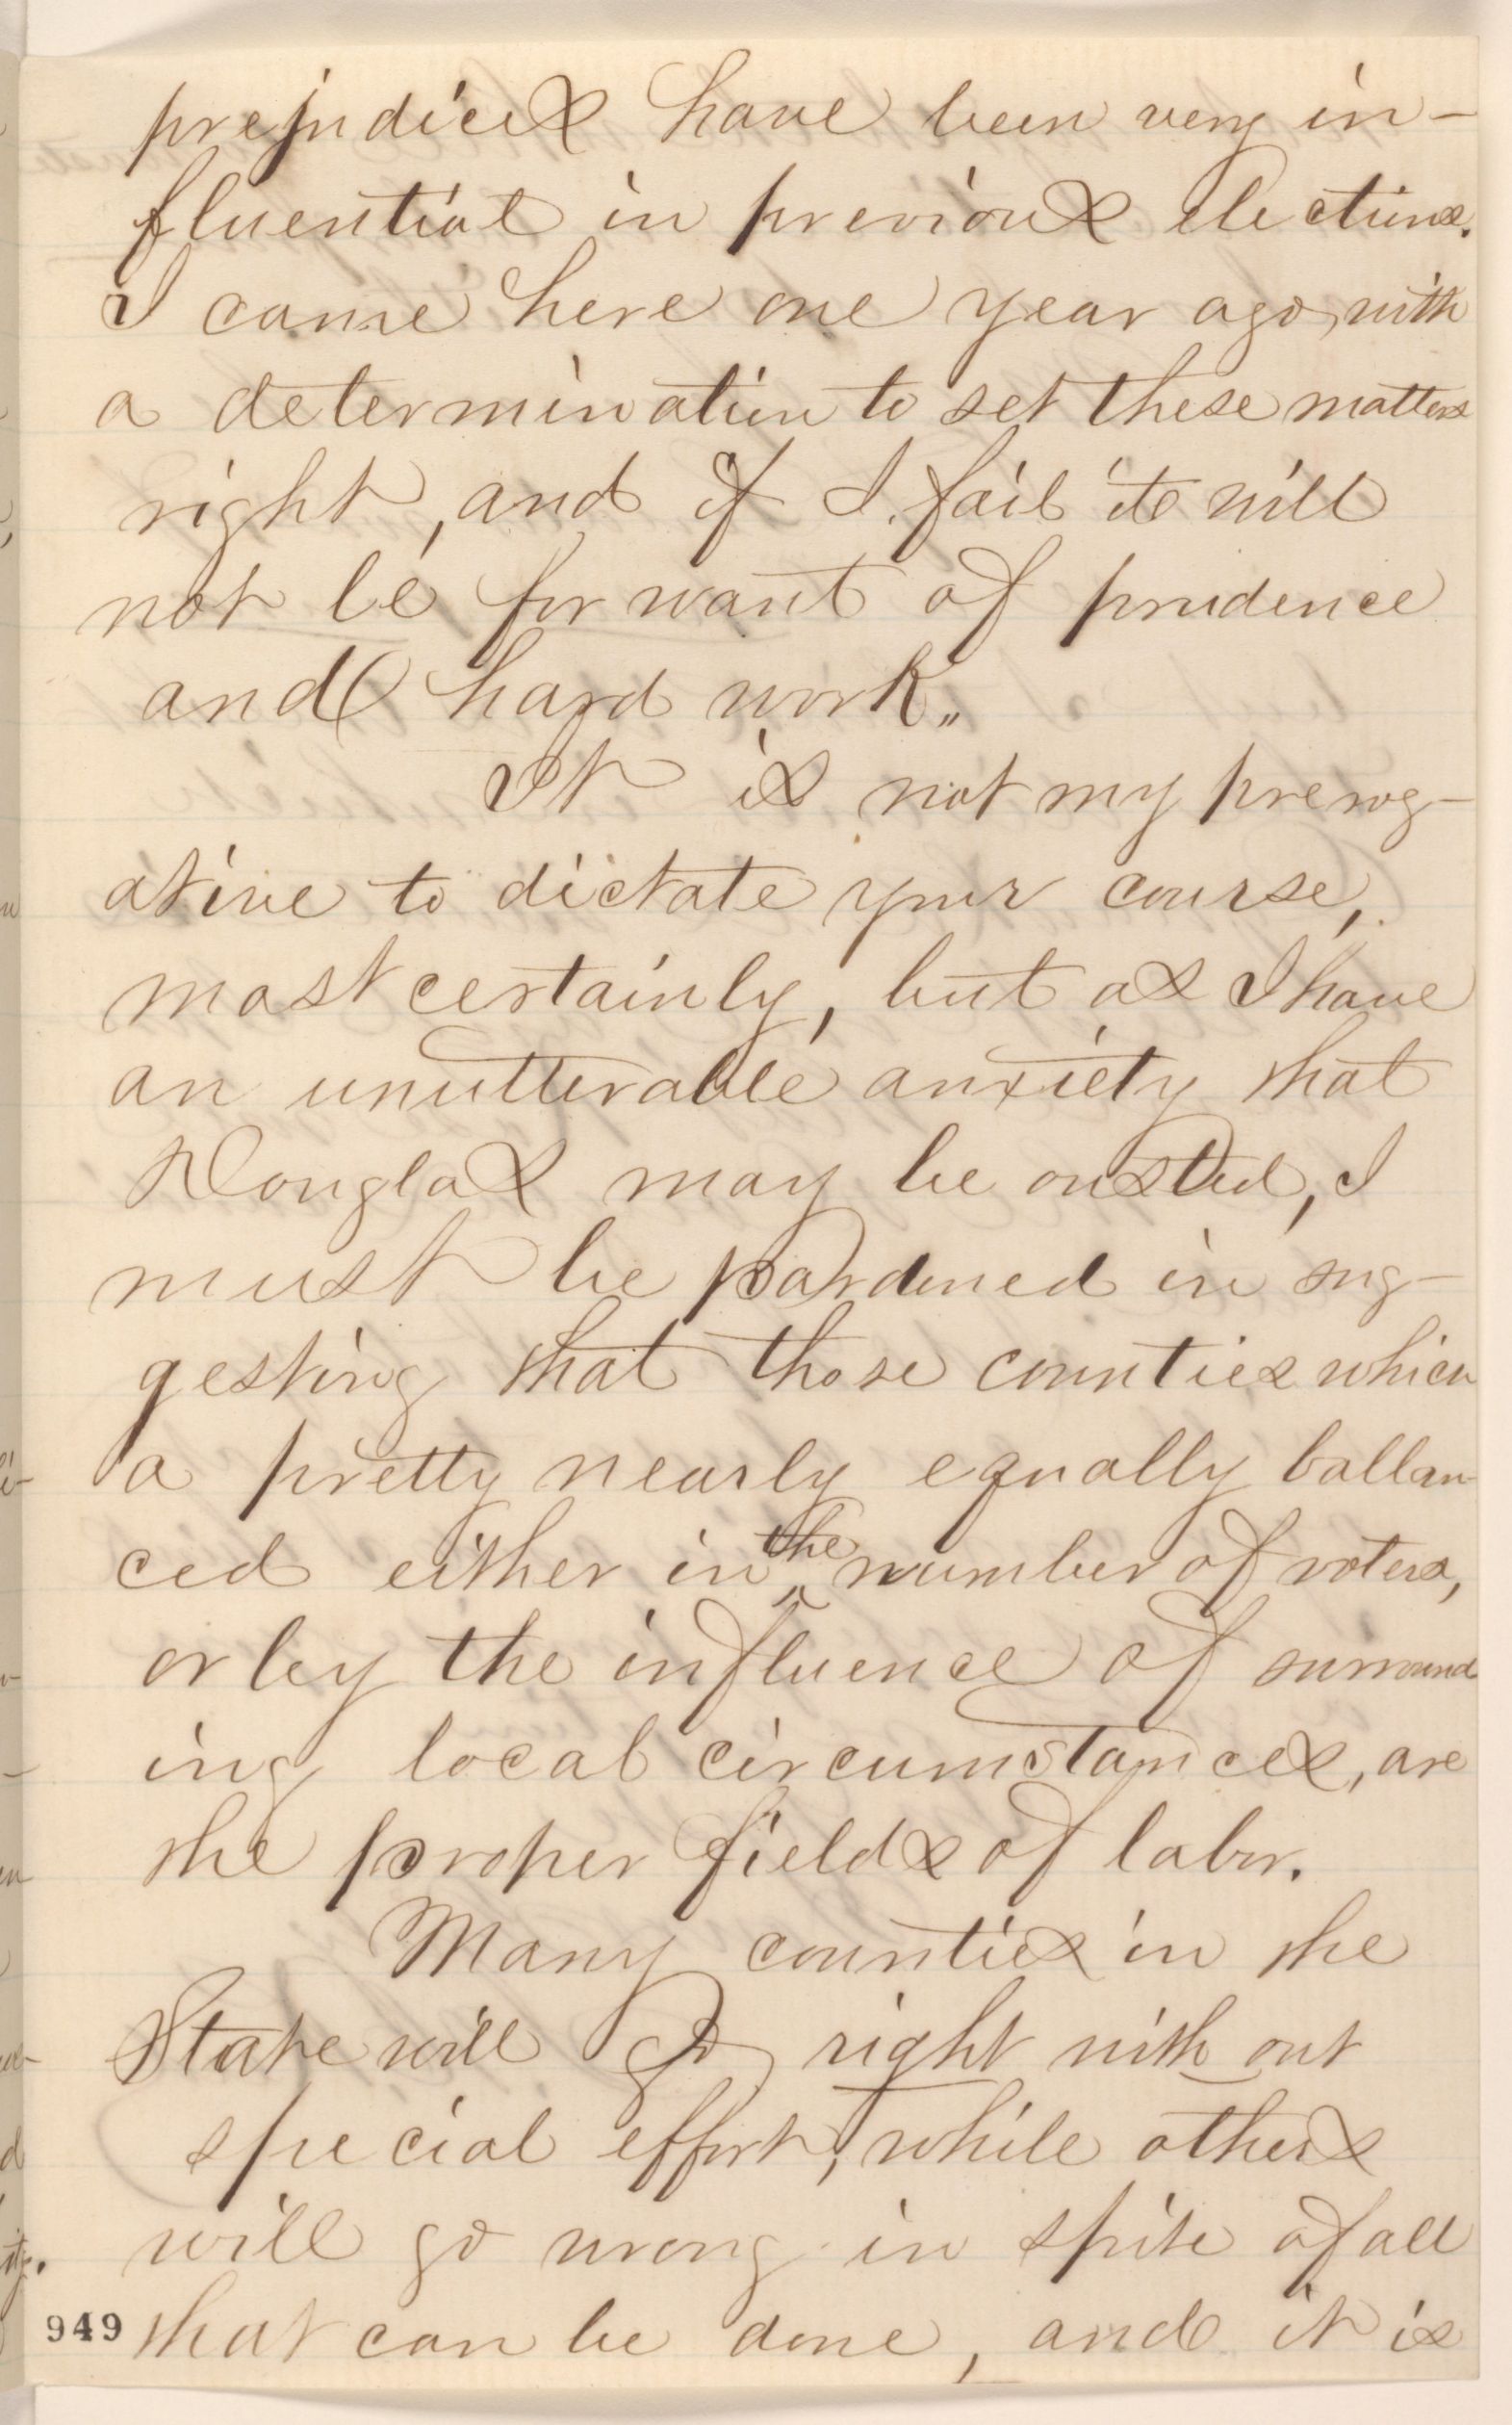 prejudices have been very in-
fluential in previous elections.
I came here one year ago, with
a determination to set these matters
right, and if I fail it will
not be for want of prudence
and hard work.
It is not my prerog-
ative to dictate your course,
most certainly, but as I have
an unutterable anxiety that
Douglas may be ousted, I
must be pardoned in sug-
gesting that those counties which
a pretty nearly equally ballan-
ced either in the number of voters,
or by the influence of surround
ing local circumstances, are
the proper fields of labor.
Many counties in the
State will go right with out
special effort, while others
will go wrong in spite of all
949 that can be done, and it is